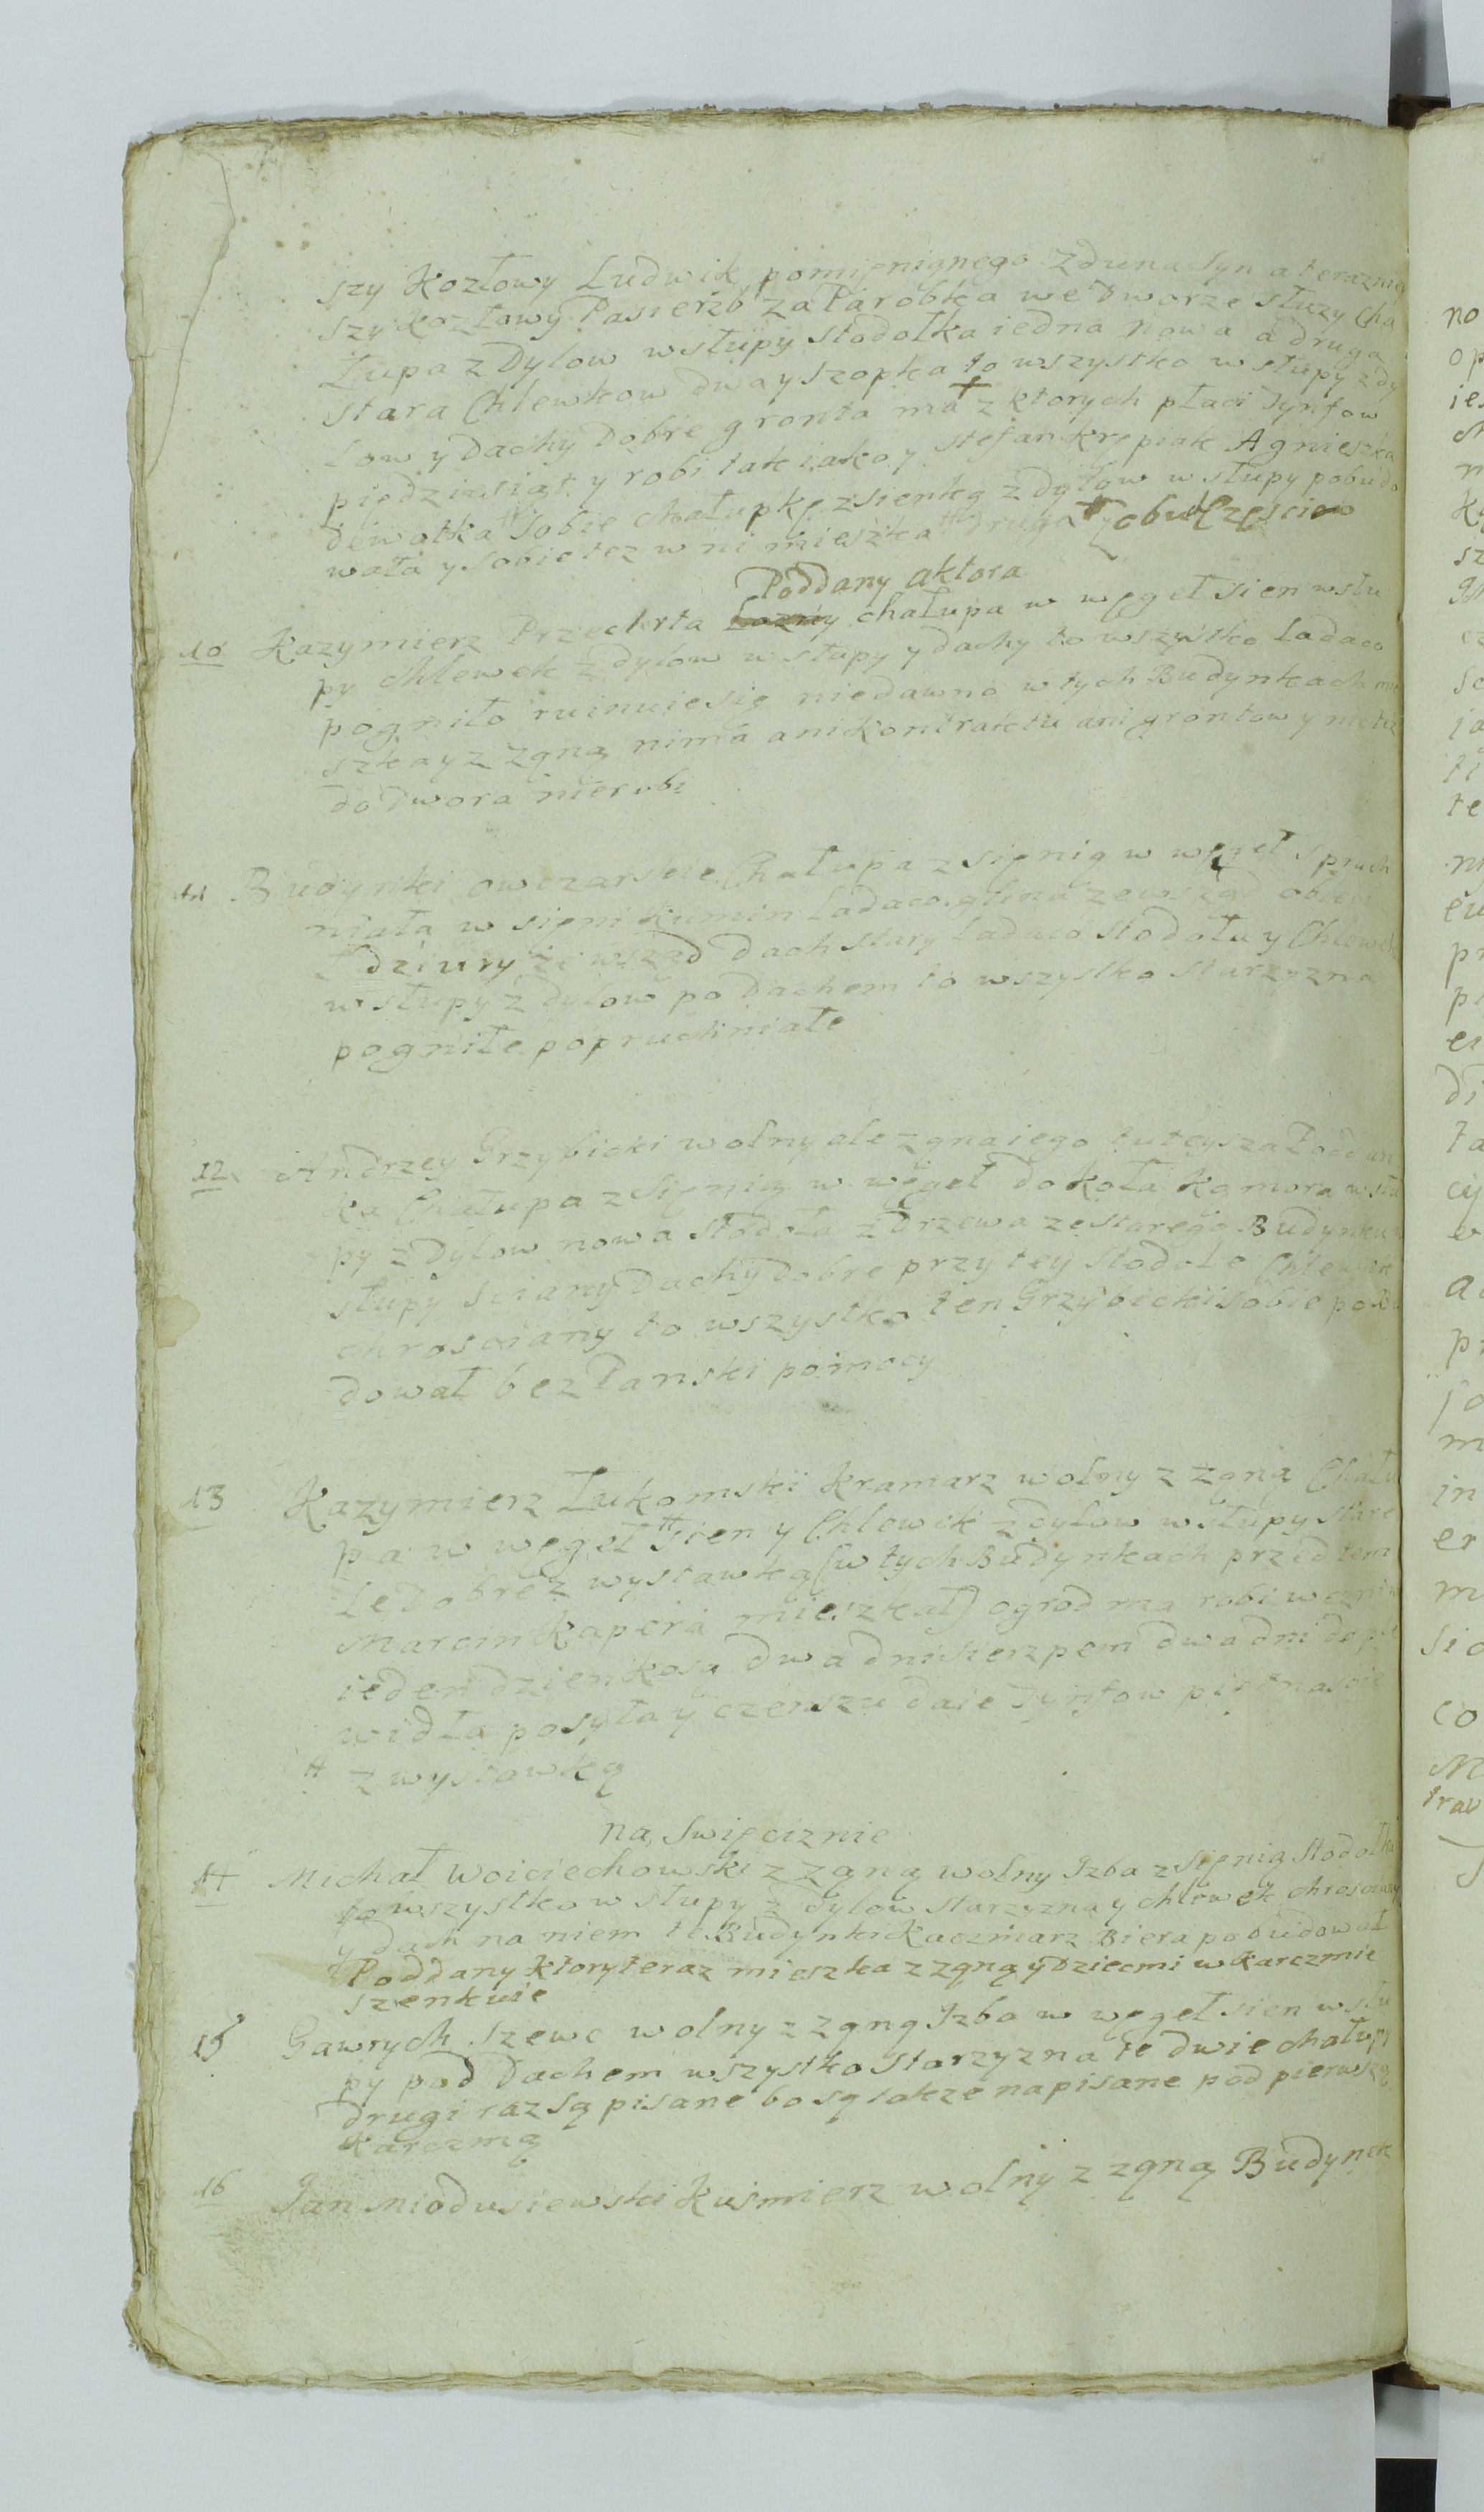 szy Kozłowy Ludwik pomięnianego Zduna Syn a terazniey
szy Kozłowy Pasierżb za Parobka we Dworze słuzy Cha
łupa z Dylow w słupy stodołka iedna nowa a druga
stara Chlewkow dwa y szopka to wszystko w słupy z dy
low y dachy dobre gronta ma + z ktorych płaci Tynfow
piędziesiąt y robi tak iako y Stefan Krępiak Agnieszka
dewotka # Sobie chałupkę z sienką z dylow w słupy pobudo
wała y sobie tez w ni mieszka # druga # y obu Częsciow
Poddany aktora
10 Kazymierz Przechrta chałupa w węgeł sien w słu
py chlewek z dylow w słupy y dachy to wszystko ladaco
pogniło ruinuie się niedawno w tych Budynkach mie
szka y z Zqną nima ani Kontraktu ani grontow y nic tez
do Dwora nierobi
11 Budynki owczarskie Chałupa z sięnią w węgeł spruch
niała w sięni Kumin ladaco gliną zewsząd oblepia
ł dziury zewsząd dach stary ladaco stodoła y Chlewek
w słupy z dylow po dachem to wszystko starzyzna
pogniłe popruchniałe
12 Andrzey Grzybicki wolny ale zqna iego tuteysza Poddan
ka Chałupa z Sięnią w węgeł do koła Kqmora w słu
py z Dylow nowa stodoła z Drzewa ze starego Budynku w
słupy sciany Dachy dobre przy tey stodole Chlewek
chrosciany to wszystko ten Grzybicki sobie pobu
dował bez Panski pomocy
13 Kazymierz Łukomski Kramarz wolny z żoną Chału
pa w węgeł # sien y Chlewek z dylow w słupy stare
le dobre z wystawką (w tych Budynkach przedtem
Marcin Kapera mieszkał) ogrod ma robi w czniw
ieden dzien kosą dwa dni sierzpem dwa dni do po
widła posyła y czenszu daie Tynfow piętnascie
# z wystawką
na Swięciznie
14 Michał Woiciechowski z Zqną wolny Jzba z Sięnią Stodołka
to wszystko w słupy z dylow starzyzna y chlewek chrosciany
y dach na niem te Budynki Kaczmarz Biera pobudował
Poddany ktory teraz mieszka z zqną y Dziecmi w Karczmie
szenkuie
15 Gawrych szewc wolny z zqną Jzba w węgeł sien w słu
py pod Dachem wszystko starzyzna te dwie chałupy
drugi raz są pisane bo są takze napisane pod pierwszą
Karczmą
16 Jan Miodusiewski Kuśmierz wolny z zqną Budynek